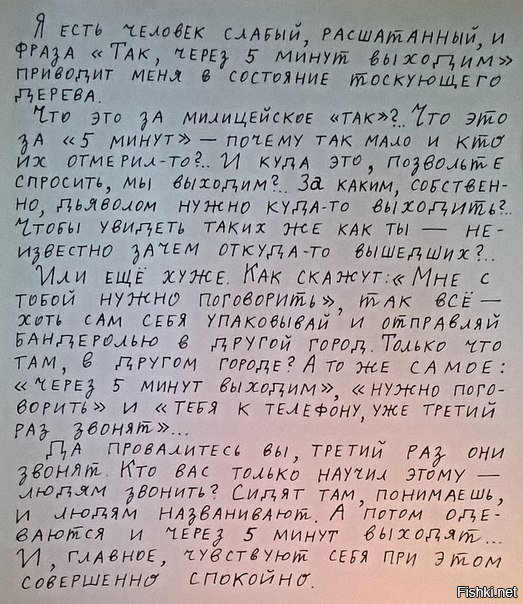 Я есть человек слабый, расшатанный, и
фраза «Так, через 5 минут выходим»
приводит меня в состояние тоскующего
дерева.
Что это за милицейское «так»?.. Что это
за «5 минут» — почему так мало и кто
их отмерил-то?.. И куда это, позвольте
спросить, мы выходим?.. За каким, собствен-
но, дьяволом нужно куда-то выходить?..
Чтобы увидеть таких же как ты — не-
известно зачем откуда-то вышедших?..
Или ещё хуже. Как скажут: «Мне с
тобой нужно поговорить», так всё —
хоть сам себя упаковывай и отправляй
бандеролью в другой город. Только что
там, в другом городе? А то же самое:
«через 5 минут выходим», «нужно пого-
ворить» и «тебя к телефону, уже третий
раз звонят»...
Да провалитесь вы, третий раз они
звонят. Кто вас только научил этому —
людям звонить? Сидят там, понимаешь,
и людям названивают. А потом оде-
ваются и через 5 минут выходят...
И, главное, чувствуют себя при этом
совершенно спокойно.
Fishki.net